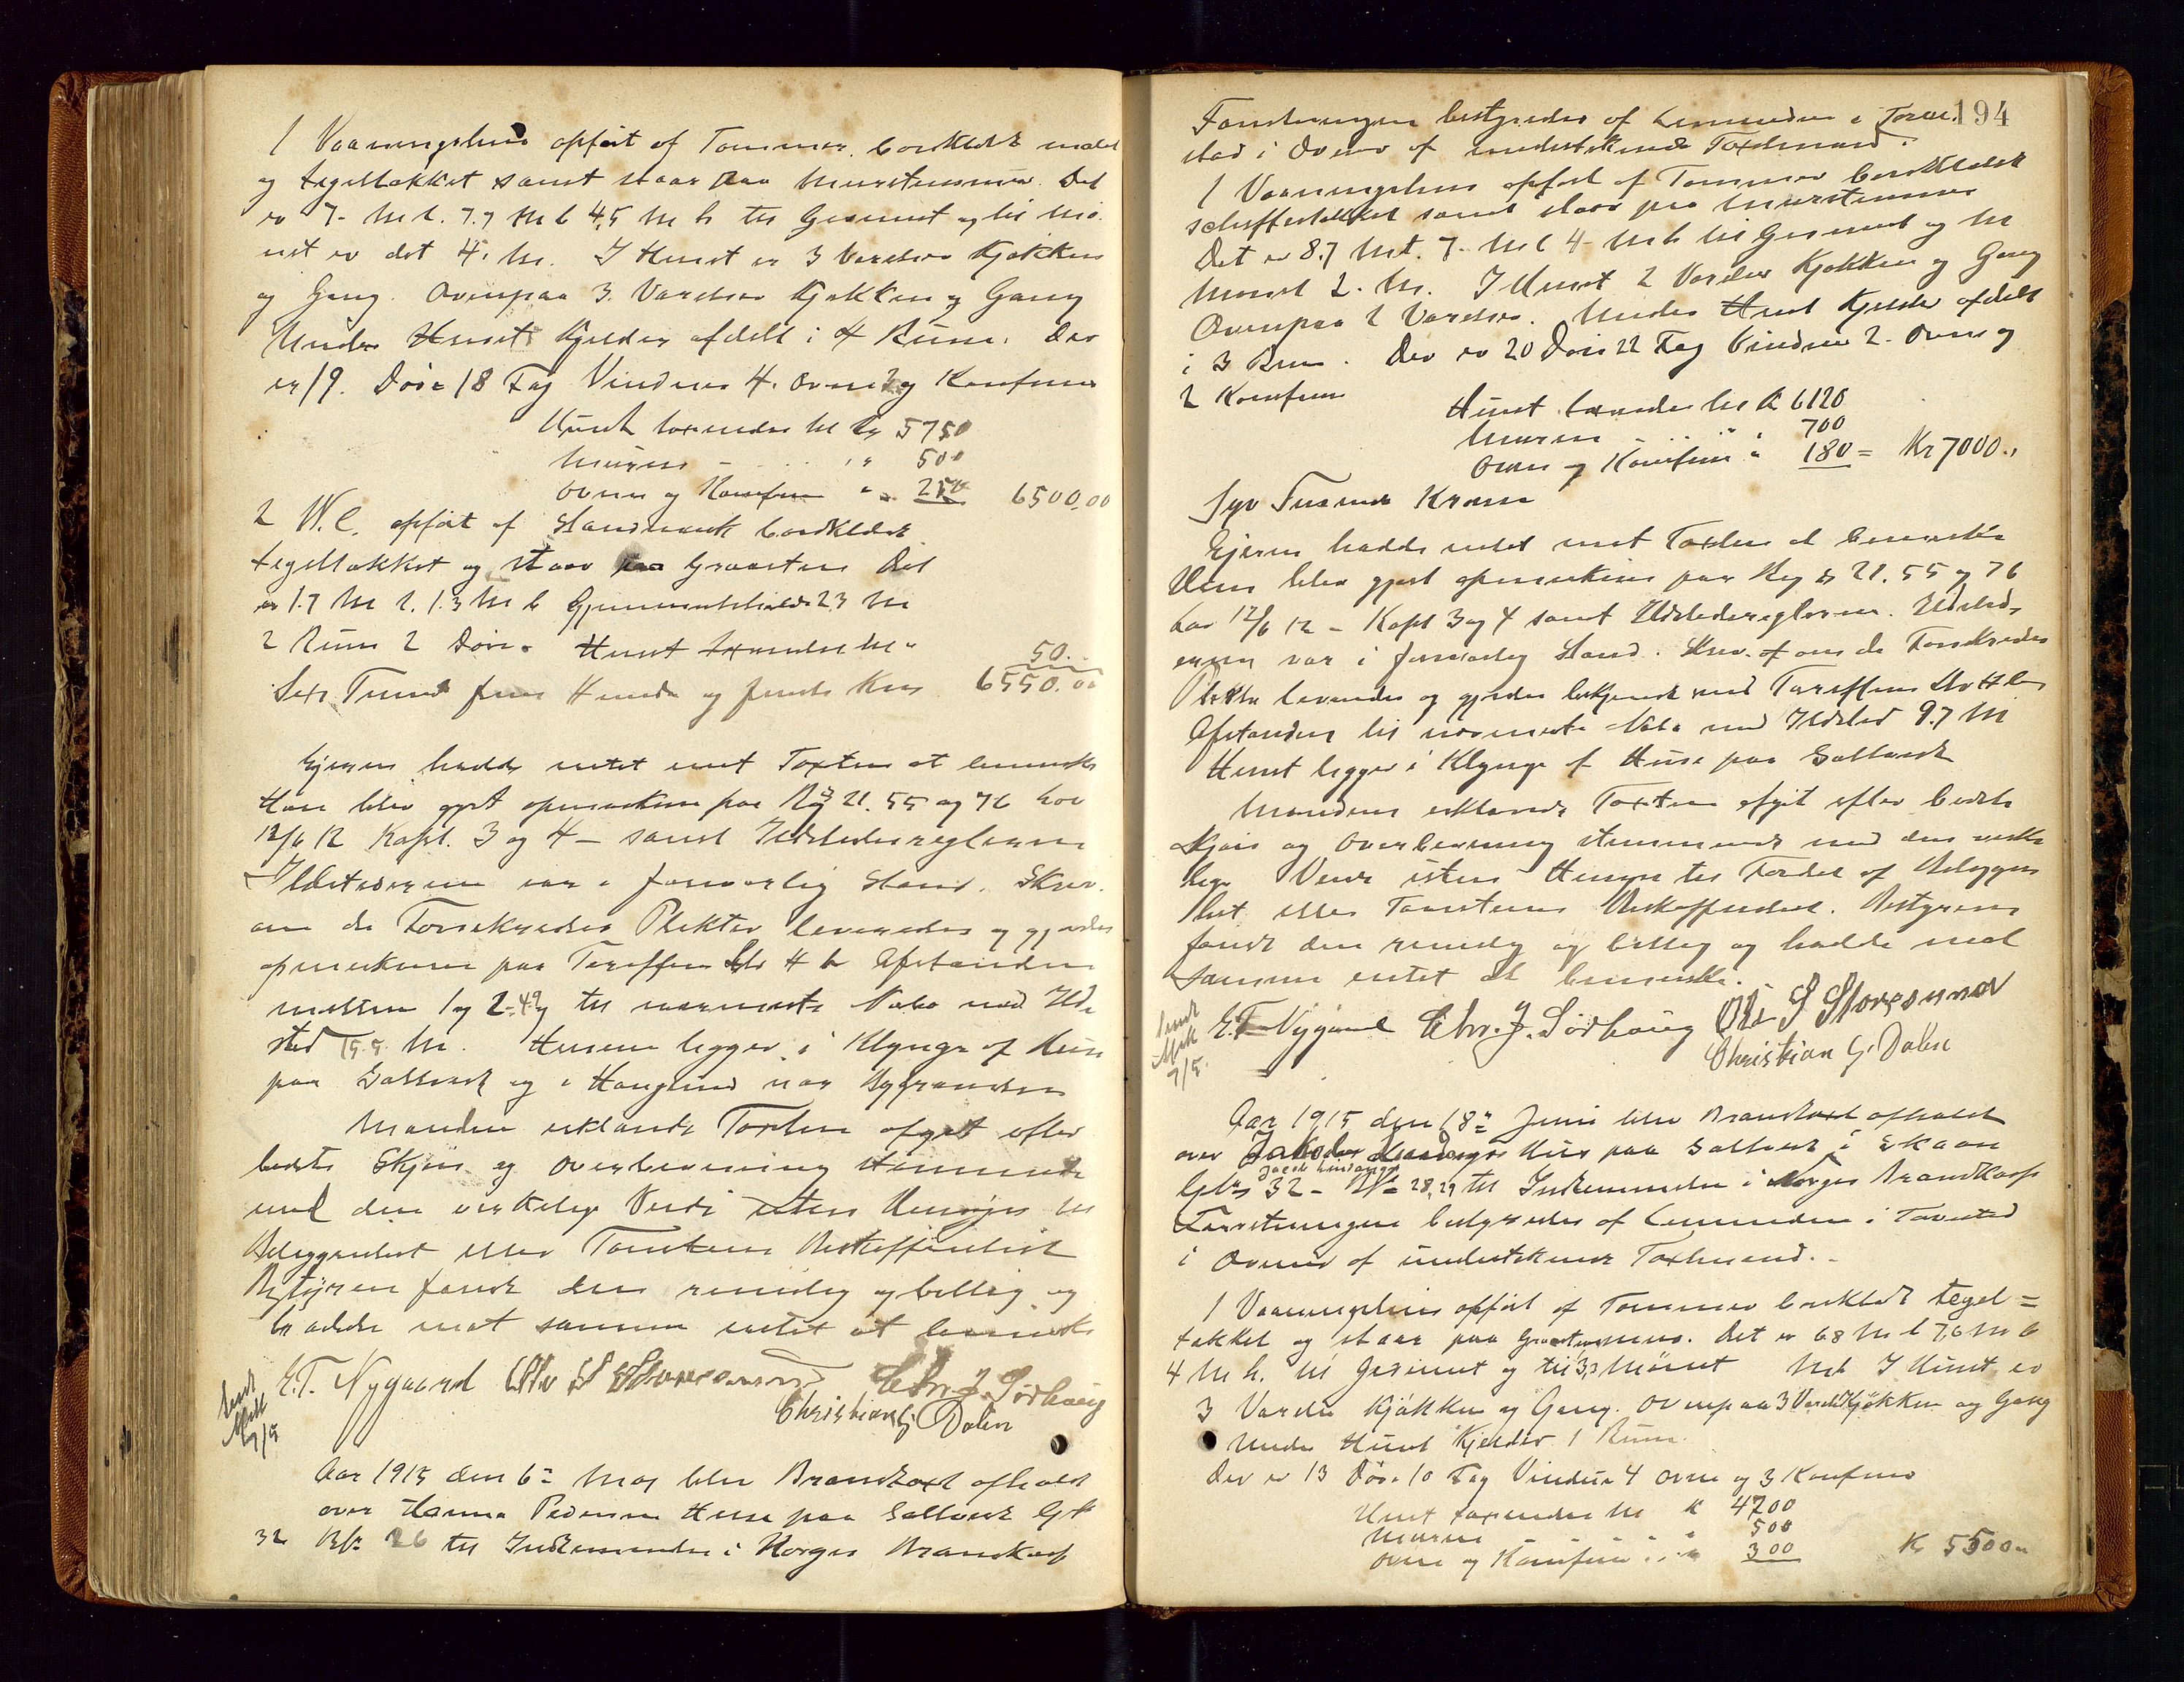 1 Vaaningshus opført af Tømmer bordklædt malet
og tegeltækket samt staar paa Murstensmur. Det
er 7- M l. 7.7 M b 4,5 M h til Gesimset og til Mø-
net er det 4. M. I Huset er 3 Værelser Kjøkken
og Gang. Ovenpaa 3. Værelser Kjøkken og Gang
Under Huset Kjelder afdelt i 4 Rum. Der
er 19. Døre 18 Fag Vinduer 4. ovne 2 og Komfurer
Huset taxeredes til Kr 5750
Muren - . . " " 500
Ovne og Komfurer " " 250 6500,00
2 W.C. opført af Standværk bordklædt
tegeltækket og staar paa Graasten Det
er 1.7 M l. 1.3 M b Gjennemsnitshøide 2,3 M
2 Rum 2 Døre. Huset taxeredes til "
50..
Sex Tusind fem Hundr og femti Kro 6550.00
Ejeren hadde intet mot Taxten at bemerke
Han blev gjort opmerksom paa Reg § 21. 55 og 76 hor
12/6 12 Kapt. 3 og 4 - samt Ildstedsreglerne
Ildstederne var i forsvarlig Stand. Skrev.
om de Forsikredes Plikter leveredes og gjordes
opmerksom paa Tariffens Afstanden
mellem 1 og 2 - 4.9 og til nærmeste Nabo med Ild-
sted 15.5 M. Husene ligger i Klynge af Huse
paa Saltvik og i Haugesund nar Bygrændsen
Mændene erklærede Taxten afgit efter
bedste Skjøn og Overbevisning stemmende
med den virkelige Verdi uten Hensyn til
Beliggenhet eller Tomtens Beskaffenhet
Bestyreren fandt den rimelig og billig og
hadde mot samme intet at bemerke
E.T. Nygaard Ole S Storesund Chr. J. Sørhaug
Christian G Dalen
Sendt
Mdt
7/5
Aar 1915 den 6te Maj blev Brandtaxt afholdt
over Hanna Pedersen Huse paa Saltvik Gb
32 Br 26 til Indtemmelse i Norges Brandkasse
194
Forretningen bestyredes af Lensmanden i Torve-
stad i Overvær af undertegnede Taxtmænd.
1 Vaaningshus opført af Tømmer bordklædt
skiffertækket samt staar paa Murstensmur
Det er 8.7 M l. 7- M b 4- M h til Gesimset og til
Mønet 2. M. I Huset 2 Værelser Kjøkken og Gang
Ovenpaa 2 Værelser. Under Huset Kjelder afdelt
i 3 Rum. Der er 20 Døre 22 Fag Vinduer 2. Ovne og
2 Komfurer
Huset taxeredes til Kr 6120
Muren - .. " " 700
Ovne og Komfurer " 180 = Kr 7000.,
Syv Tusinde Kroner
Ejeren hadde intet mot Taxten at bemerke
Han blev gjort opmerksom paa Reg § 21. 55 og 76
hor 12/6 12 - Kapt 3 og 4 samt Ildstedsreglerne. Ildsted-
erne var i forsvarlig Stand. Skrev. om de Forsikredes
Plikter leveredes og gjordes bekjendt med Tariffens
Afstanden til nærmeste Nabo med Ildsted 9.7 M
Huset ligger i Klynge af Huse paa Saltvik
Mændene erklærede Taxten afgit efter bedste
Skjøn og Overbevisning stemmende med den virke-
lige Verdi uten Hensyn til Fordel af Beliggen-
het eller Tomtens Beskaffenhet. Bestyreren
fandt den rimelig og billig og hadde mot
samme intet at bemerke.
E.T. Nygaard Chr. J. Sørhaug Ole S Storesund
Christian G. Dalen
Sendt
Mdt
7/5.
Aar 1915 den 18de Juni blev Brandtaxt afholdt
over Jakobs Hus paa Saltvik i Skaare
Gbr 32 - No 28,29 til Indtemmelse i Norges Brandkasse
Forretningen bestyredes af Lensmanden i Torvestad
i Overvær af undertegnede Taxtmænd.
1 Vaaningshus opført af Tømmer bordklædt tegel=
tækket og staar paa Graastensmur. Det er 6.8 M l 7,6 M b
4 M h. til Gesimset og til 3,3 Mønet I Huset er
3 Værelser Kjøkken og Gang. Ovenpaa 3 Værelser Kjøkken og Gang
Under Huset Kjelder 1 Rum.
Der er 13 Døre 10 Fag Vinduer 4 Ovne og 3 Komfurer
Huset taxeredes til Kr 4700
Muren " " 500
Ovne og Komfurer " " 300 Kr 5500 "